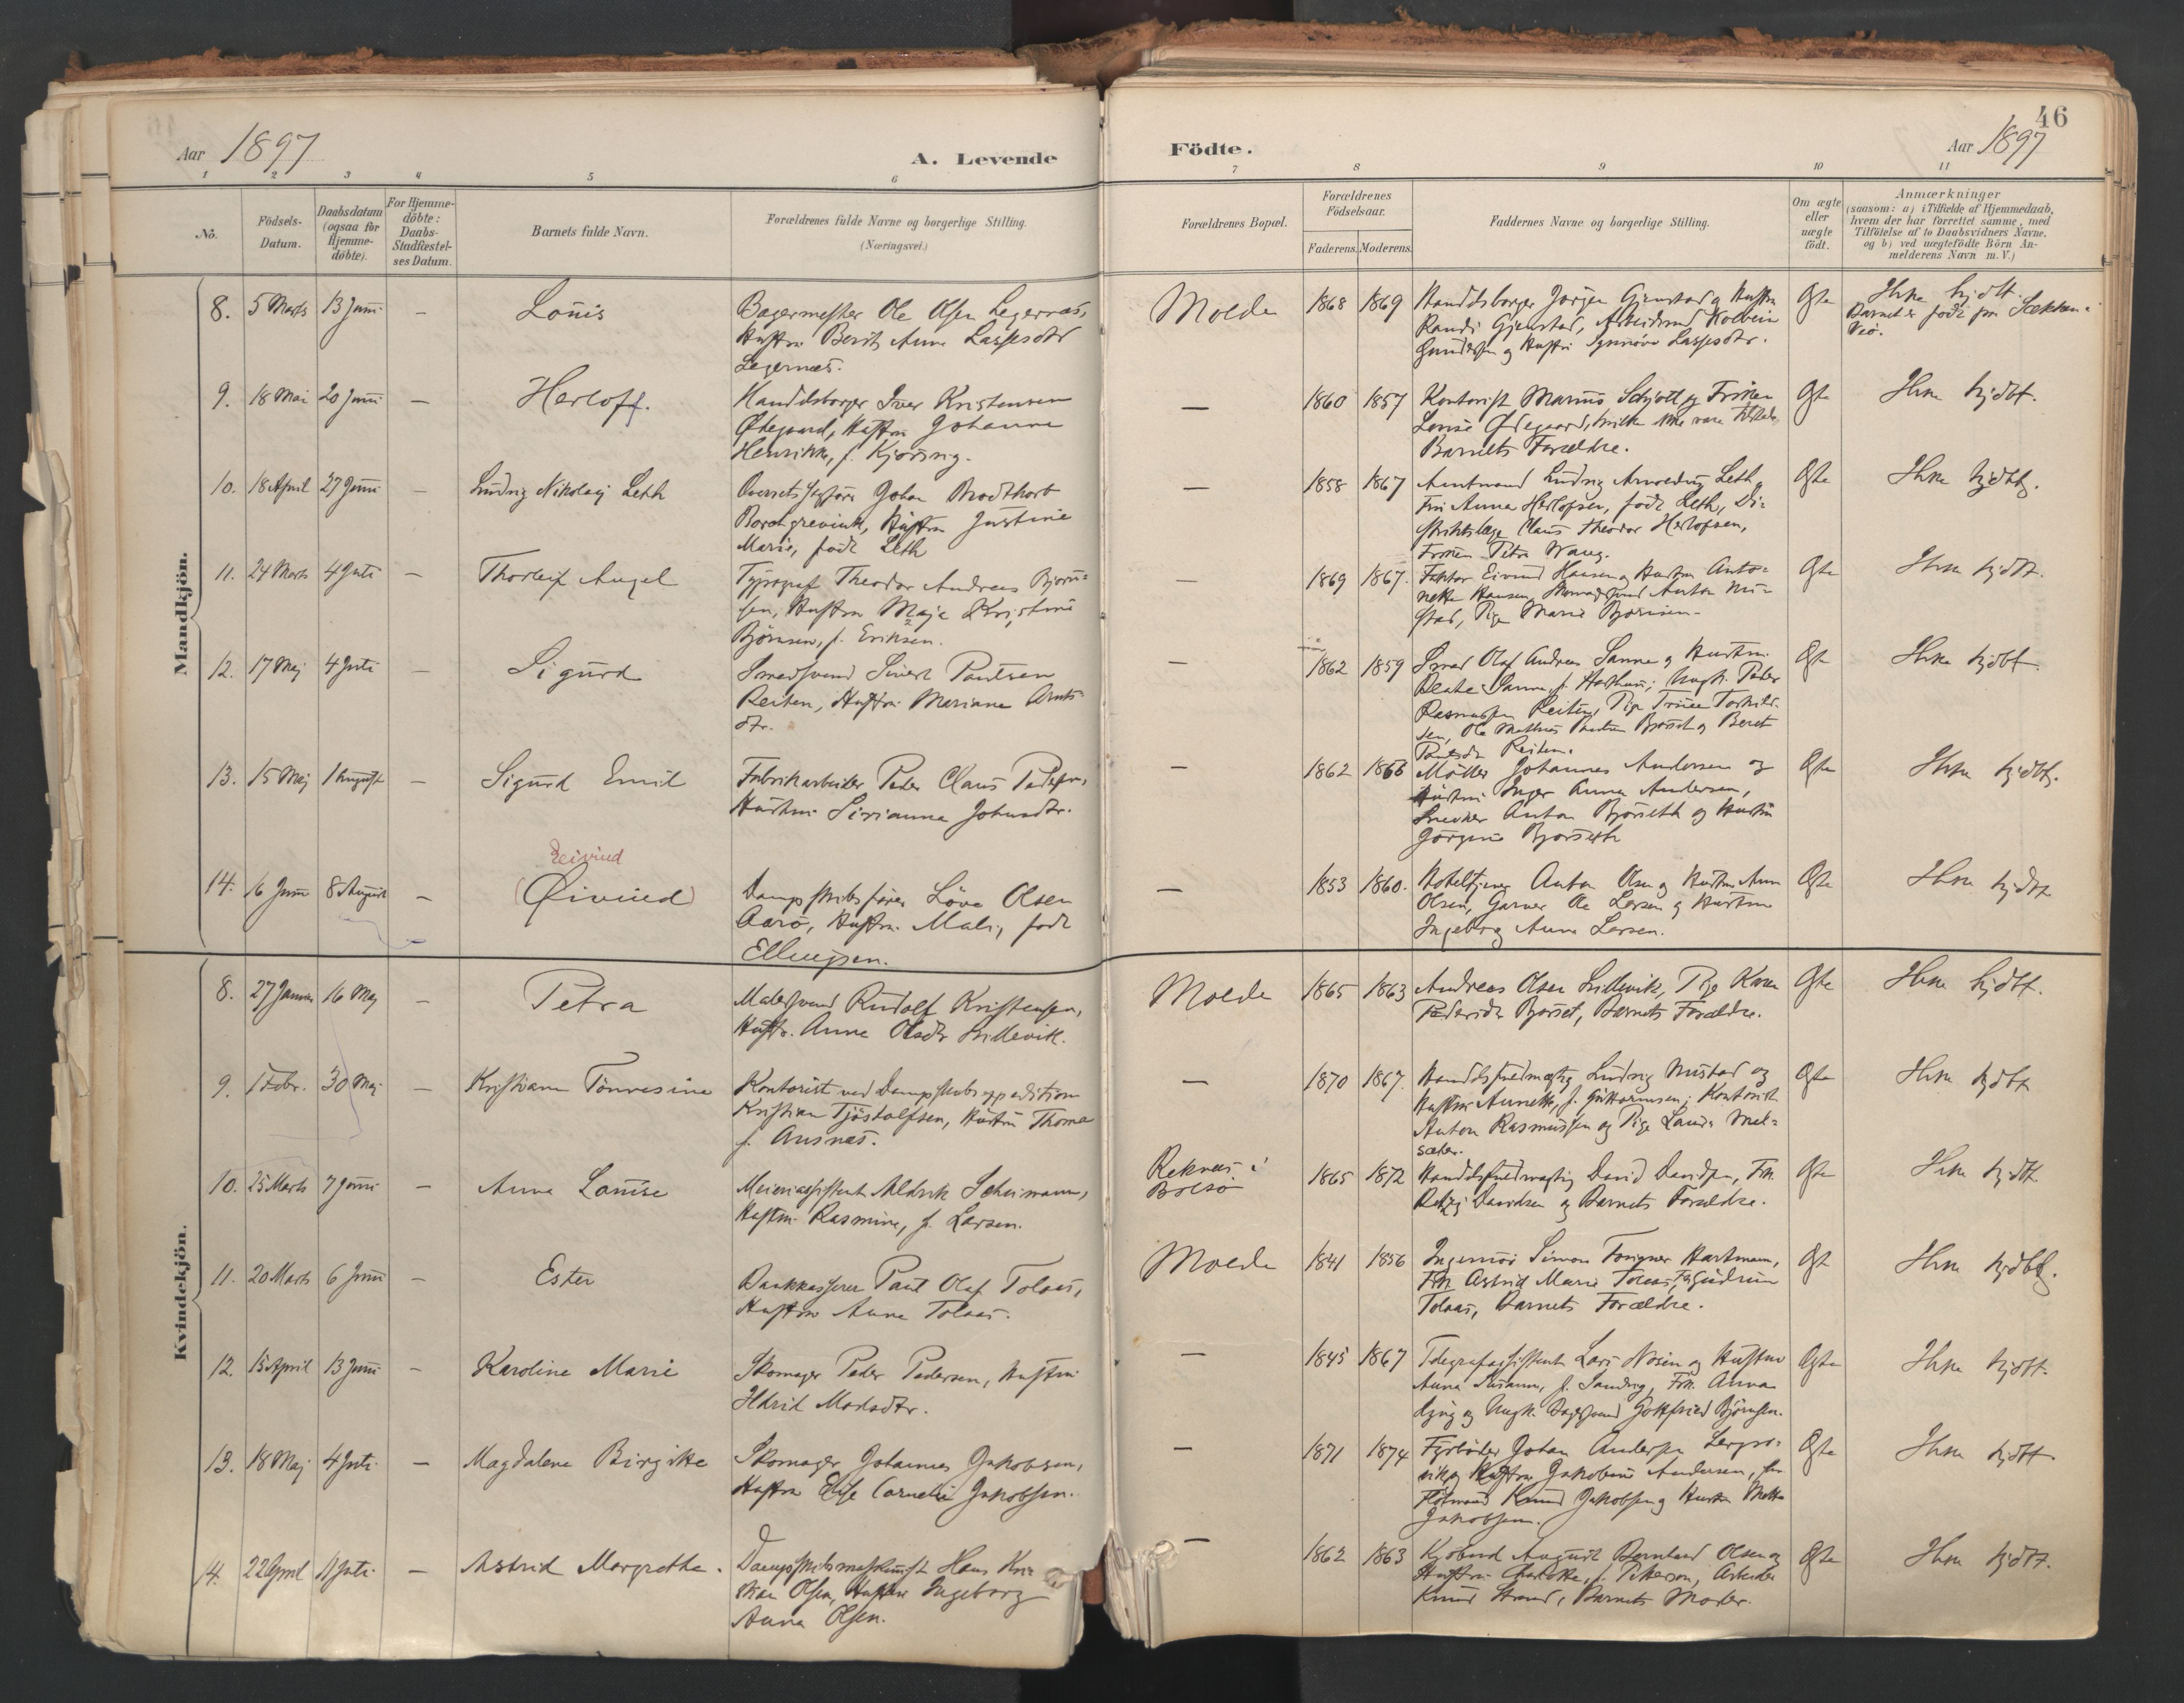 46
Aar 1897
A. Levende
Födte.
Aar 1897
1 2 3 4 5 6 7 8 9 10 11
No.
Födsels-Datum.
Daabsdatum (ogsaa for Hjemme-döbte).
For Hjemme-döbte: Daabs-Stadfæstel-ses Datum.
Barnets fulde Navn.
Forældrenes fulde Navne og borgerlige Stilling.
(Næringsvei.)
Forældrenes Bopæl.
Forældrenes Födselsaar.
Faderens. Moderens.
Faddernes Navne og borgerlige Stilling.
Om ægte eller uægte födt.
Anmærkninger
(saasom: a) i Tilfælde af Hjemmedaab, hvem der har forrettet samme, med Tilföielse af to Daabsvidners Navne, og b) ved uægtefödte Börn An-melderens Navn m. V.)
Mandkjön.
8. 5 Marts 13 Juni — Louis
Bagermester Ole Olsen Legernæs,
Hustru Berit Anne Lassesdtr
Legernæs.
Molde 1868 1869
Handelsborger Jørgen Gjenstad og Hustru
Randi Gjenstad, Arbeidsmand
og Hustru Synnøve Lassesdtr.
Ægte
Ikke hjdbt.
Barnet er født paa Sækken
9. 18 Mai 20 Juni — Herloff.
Handelsborger Iver Kristensen
Ødegaard, Hustru Johanna
Henrikke, f.
— 1860 1857
Kontorist Marius Schjøtt og Frøken
Louise Ødegaard, hvilke ikke vare tilstede
Barnets Forældre.
Ægte Ikke hjdbt.
10. 18 April 27 Juni — Ludvig Nikolaj Leth
Overretssagfører Johan Brodtkorb
Borchgrevink, Hustru Justine
Marie, født Leth
— 1858 1867
Amtmand Ludvig Arnoldus Leth,
Fru Anna Herlofsen, født Leth, Di-
striktslæge Claus Theodor Herlofsen,
Frøken Petra Wang.
Ægte Ikke hjdbt.
11. 24 Marts 4 Juli — Thorleif Angel
Typograf Theodor Andreas Bjørn-
sen, Hustru Maja Kristine
Björnsen, f. Eriksen.
— 1869 1867.
Faktor Eivind Hansen og Hustru Anto-
nette Hansen, Anton Mu-
stad, Pige Marie Bjørnsen.
Ægte Ikke hjdbt.
12. 17 Maj 4 Juli — Sigurd
Smedsvend Sivert Paulsen
Reiten, Hustru Mariane Arnts-
dtr.
— 1862 1859
Smed Olaf Andreas Sanne og Hustru
Beate Sanne, f. Ungk. Peder
Rasmussen Reiten, Pige Trine Torkild-
sen, Ole Mathias Paulsen og Beret
Paulsdtr Reiten.
Ægte Ikke hjdbt.
13. 15 Maj 1 August — Sigurd Emil
Fabrikarbeider Peder Claus Pedersen,
Hustru Sirianna Johnsdtr.
— 1862 1866
Møller Johannes Andersen og
Hustru Inger Anna Andersen,
Snedker Anton Bjørseth og Hustru
Jørgine Bjørseth
Ægte Ikke hjdbt.
Eivind
14. 16 Juni 8 August — (Øivind)
Dampskibsfører Löve Olsen
Aarö, Hustru Mali, født
Ellingsen.
— 1853 1860.
Anton Olsen og Hustru Anne
Olsen, Garver Ole Larsen og Hustru
Ingeborg Anna Larsen.
Ægte Ikke hjdbt
Kvindekjön.
8. 27 Januar 16 Maj — Petra
Malersvend Rudolf Kristensen,
Hustr. Anne Olsdtr
Molde 1865 1863
Andreas Olsen Pige Karen
Pedersdtr Bjørset, Barnets Forældre.
Ægte Ikke hjdbt.
9. 1 Febr. 30 Maj — Kristiane Tönnesine
Kontorist ved Dampskibsexpedition
Kristian Tjöstolfsen, Hustru Thomea
f. Ausnæs.
— 1870 1867.
Handelsfuldmægtig Ludvig Mustad og
Hustru Annette, f. Guttormsen; Kontorist
Anton Rasmussen og Pige Laura Mel-
sæter.
Ægte Ikke hjdbt
10. 25 Marts 7 Juni — Anna Louise
Meieriassistent Aldrik Scheimann,
Hustru Rasmine, f. Larsen.
Reknes i
Bolsø
1865 1872
Handelsfuldmægtig David Davidsen, Frk.
Davidsen og Barnets Forældre.
Ægte Ikke hjdbt
11. 20 Marts 6 Juni — Ester
Bankkasserer Paul Olaf Tolaas,
Hustru Anna Tolaas.
Molde 1841 1856
Ingeniør Simon Hartmann,
Frk. Astrid Marie Tolaas, Frk Gudrun
Tolaas, Barnets Forældre.
Ægte Ikke hjdbt.
12. 15 April 13 Juni — Karoline Marie
Skomager Peder Pedersen, Hustru
Marit Madsdtr.
— 1845 1867
Telegrafassistent Lars Nosen og Hustru
Anna Susanne, f. Sandvig, Frk. Anna
og Ungk. Bagersvend Gottfried Björnsen.
Ægte Ikke hjdbt.
13. 18 Maj 4 Juli — Magdalene Birgitte
Skomager Johannes Jakobsen,
Hustru Else Cornelie Jakobsen.
— 1871 1874
Fyrbøder Johan Andersen
og Hustru Jakobine Andersen,
Knud Jakobsen og Hustru Mette
Jakobsen.
Ægte Ikke hjdbt.
14. 22 April 11 Juli — Astrid Margrethe.
Dampskibsmaskinist Hans Kri-
stian Olsen, Hustru Ingeborg
Anna Olsen.
— 1862 1863
Kjøbmd August Bernhard Olsen og
Hustru Charlotte, f. Peterson, Arbeider
Knud Strand, Barnets Moder.
Ægte Ikke hjdbt.